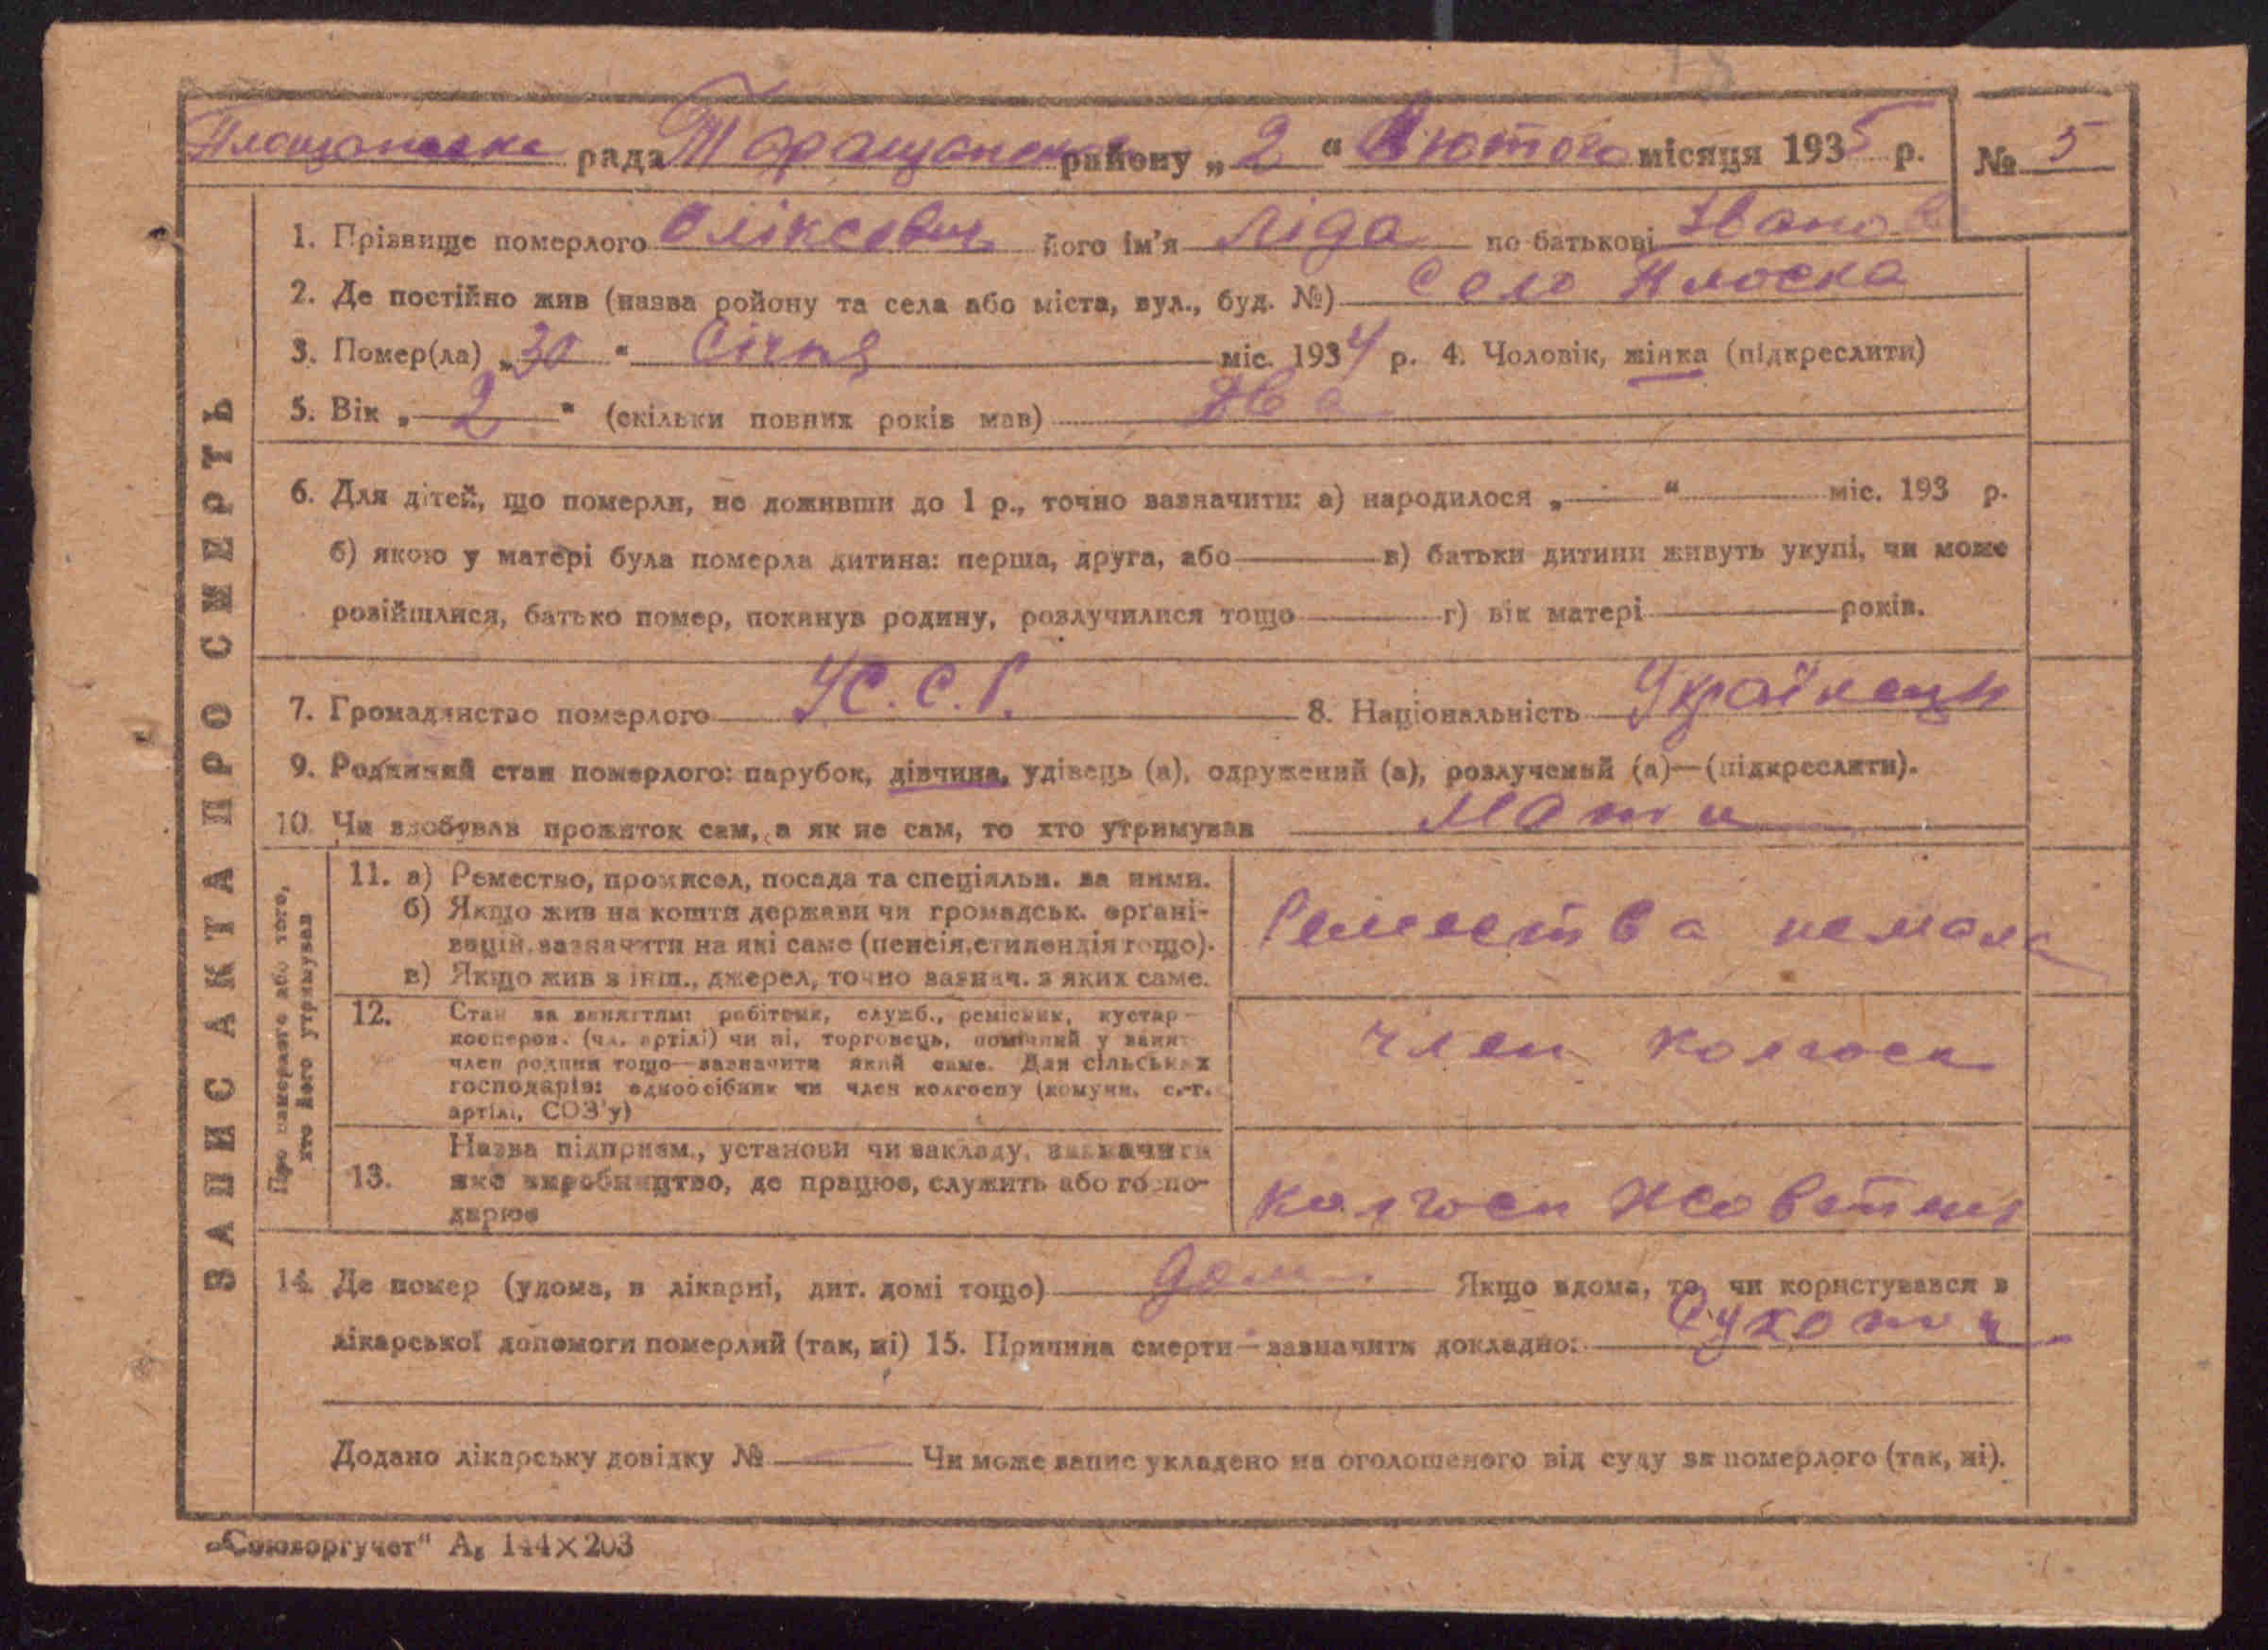 рада Таращанськ району „ 2 “ Лютого місяця 1935 р. № 5
1. Прізвище померлого Оліксевич його ім'я Ліда по батькові Іванов
2. Де постійно жив (назва ройону та села або міста, вул., буд. №) Село Плоска
3. Помер(ла) „ 30 “ Січня міс. 1934 р. 4. Чоловік, жінка (підкреслити)
5. Вік „ 2 “ (скільки повних років мав) два
6. Для дітей, що померли, не доживши до 1 р., точно зазначити: а) народилося „ “ міс. 193 р.
б) якою у матері була померла дитина: перша, друга, або в) батьки дитини живуть укупі, чи може
розійшлися, батько помер, покинув родину, розлучилися тощо г) вік матері років.
7. Громадянство померлого У.С.С.Р. 8. Національність Українець
9. Родинний стан померлого: парубок, дівчина, удівець (а), одружений (а), розлучений (а)—(підкреслити).
10. Чи здобував прожиток сам, а як не сам, то хто утримував Мати
ЗАПИС АКТА ПРО СМЕРТЬ
Про померлого або того, хто його утримував
11. а) Ремество, промисел, посада та спеціяльн. за ними.
б) Якщо жив на кошти держави чи громадськ. органі-
зацій, зазначити на які саме (пенсія, стипендія тощо).
в) Якщо жив з інш., джерел, точно зазнач. з яких саме.
Ремества немала
12. Стан за заняттям: робітник, служб., ремісник, кустар-
кооперов. (чл. артілі) чи ні, торговець, помічний у занят.
член родини тощо—зазначити який саме. Для сільських
господарів: одноосібник чи член колгоспу (комуни, с.-г.
артілі, СОЗ'у)
член колгосп
13. Назва підприєм., установи чи закладу, зазначити
яке виробництво, де працює, служить або госпо-
дарює
колгосп Жовтень
14. Де помер (удома, в лікарні, дит. домі тощо) дома Якщо вдома, то чи користувався з
лікарської допомоги померлий (так, ні) 15. Причина смерти—зазначити докладно: Сухоти
Додано лікарську довідку № Чи може запис укладено на оголошеного від суду за померлого (так, ні).
„Союзоргучет“ А₅ 144×203